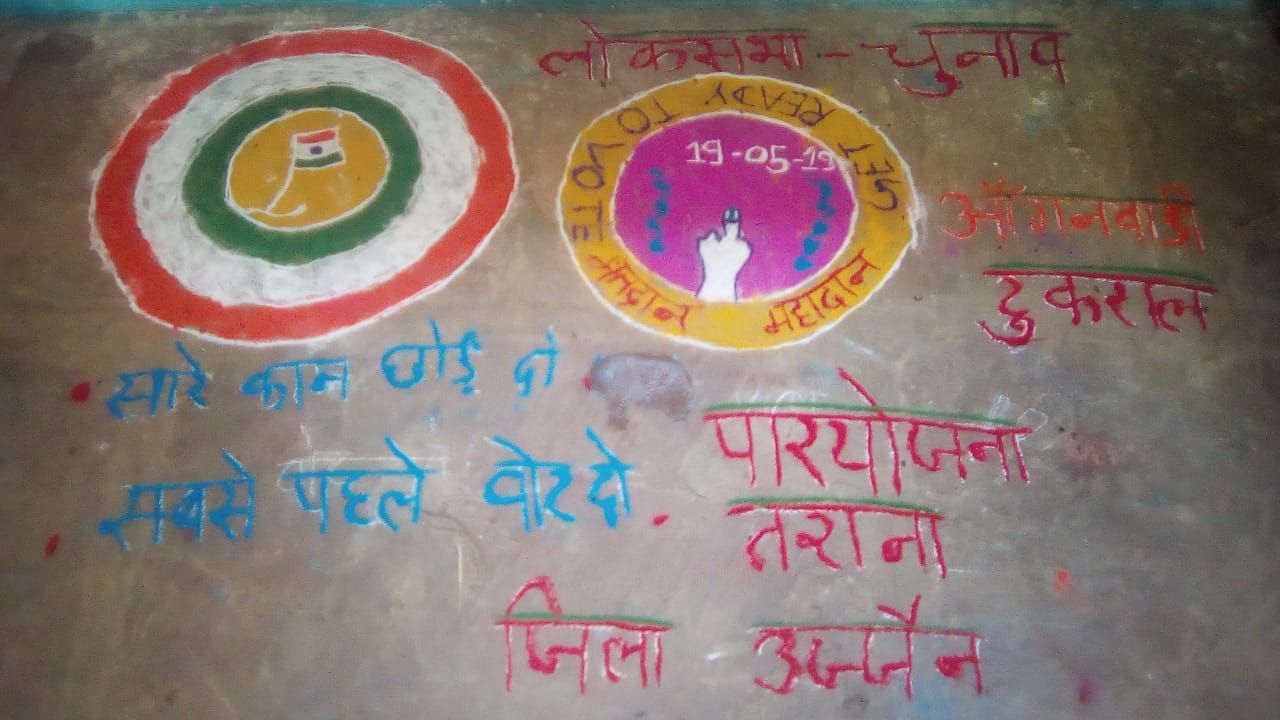 लोकसभा - चुनाव
SET READY TO VOTE
19-05-19
मतदान महादान
आँगनवाडी
टुकराल
सारे काम छोड़ दो
सबसे पहले वोट दो
परियोजना
तराना
जिला उज्जैन